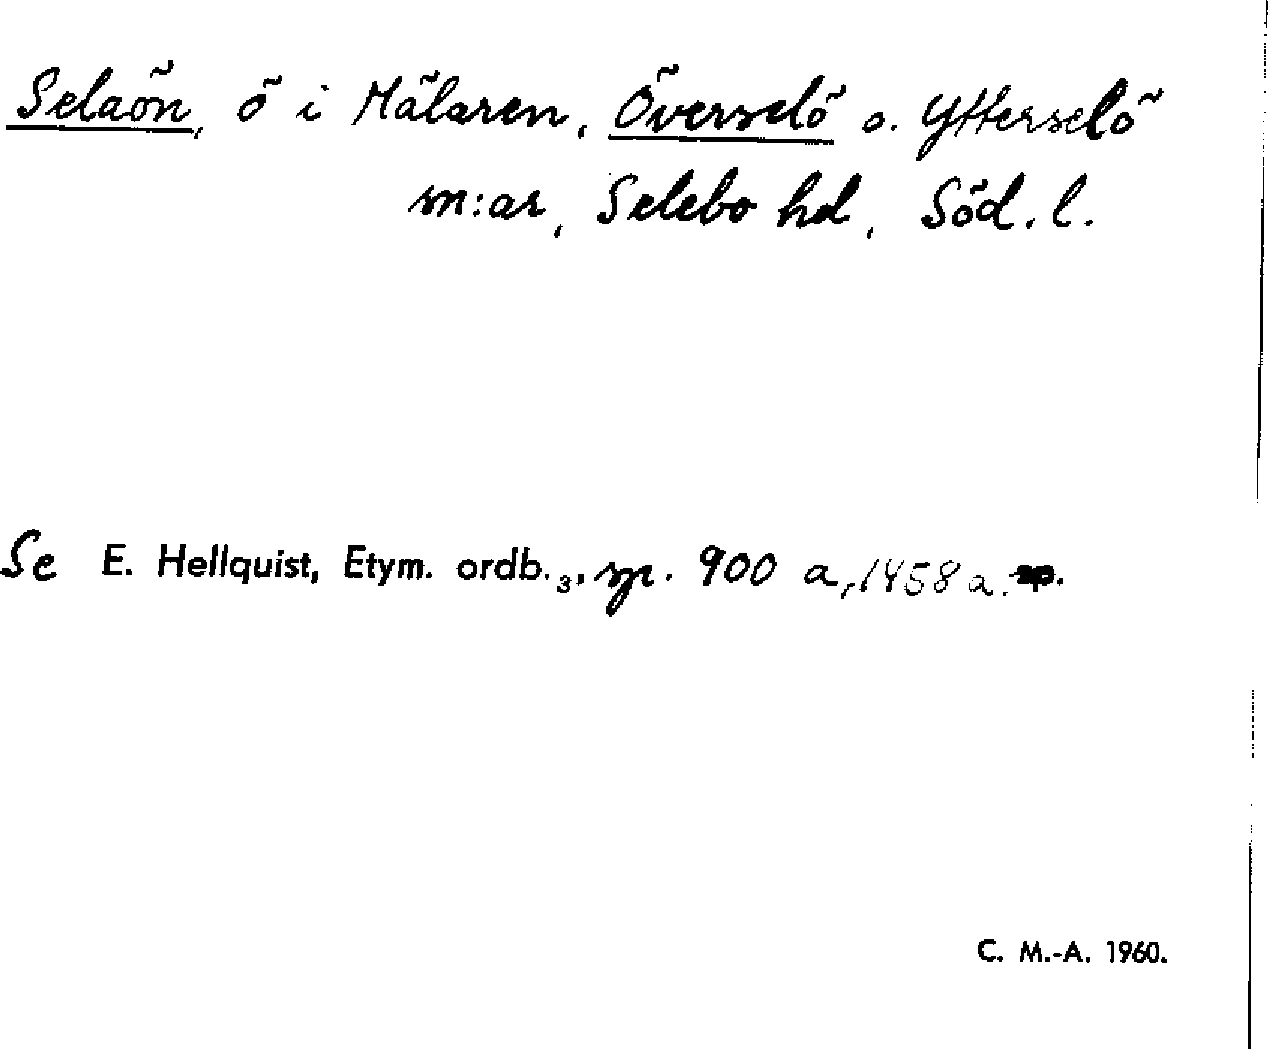 Selaön, ö i Mälaren, Överselö o. Ytterselö
sn:ar, Selebo hd, Söd. l.
Se E. Hellquist, Etym. ordb.₃, sp. 900 a, 1458 a.
C. M.-A. 1960.